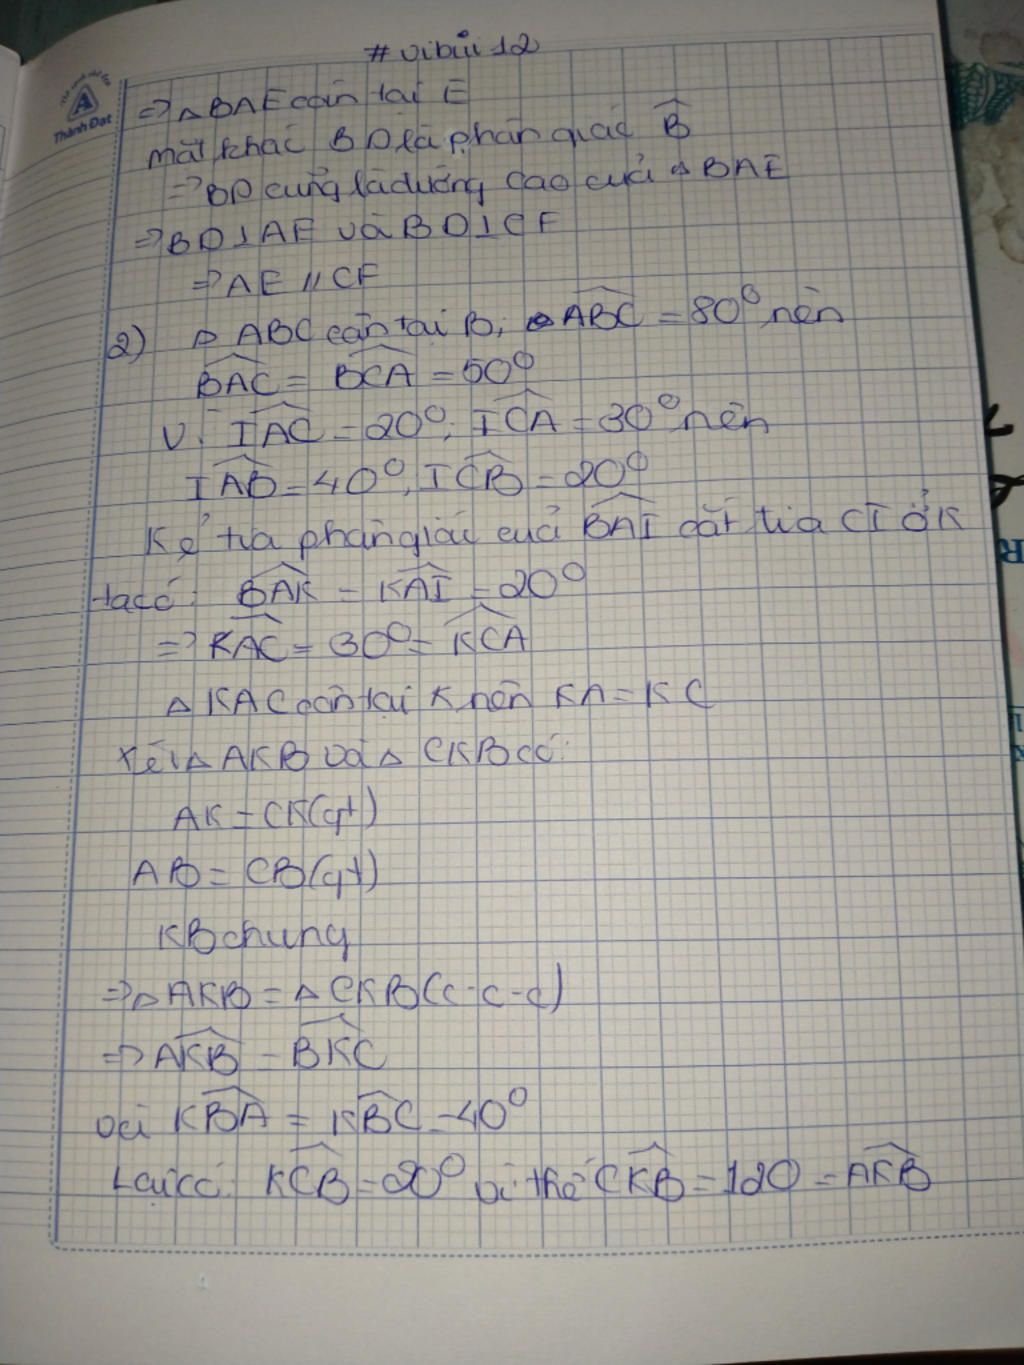 #vibùi12
Thành Đạt
=> △BAE cân tại E
mặt khác BD là phân giác B̂
=> BD cũng là đường cao của △BAE
=> BD⊥AE và BD⊥CF
=> AE // CF
2) △ABC cân tại B; ABC = 80° nên
BAC = BCA = 50°
Vì IAC = 20°; ICA = 30° nên
IAB = 40°, ICB = 20°
Kẻ tia phân giác của BAI cắt tia CI ở K
ta có: BAK = KAI = 20°
=> KAC = 30° = KCA
△KAC cân tại K nên KA = KC
Xét △AKB và △CKB có:
AK = CK(gt)
AB = CB(gt)
KB chung
=> △AKB = △CKB(c-c-c)
=> AKB = BKC
và KBA = KBC = 40°
Lại có: KCB = 20° vì thế CKB = 120 = AKB